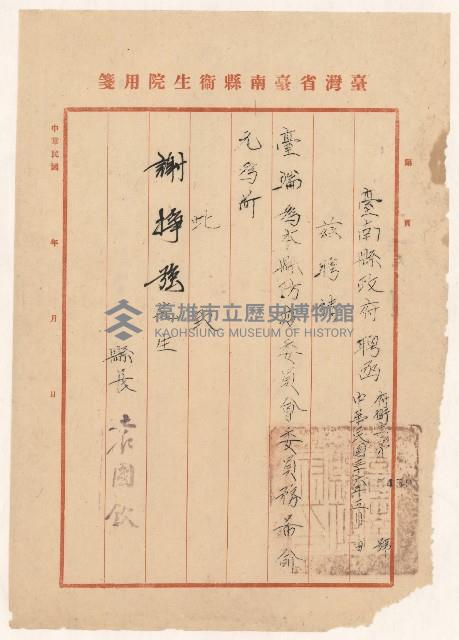 臺灣省臺南縣衛生院用箋
第 頁
臺南縣政府聘函
中華民國三十六年五月 日
號
茲聘請
臺端為本縣防疫委員會委員務希俞
允為所
此致
謝掙強先生
縣長 袁國欽
中華民國 年 月 日
高雄市立歷史博物館
KAOHSIUNG MUSEUM OF HISTORY